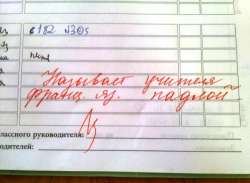 с 182 №305
Называет учителя
франц. яз. падлой
лассного руководителя:
водителей: